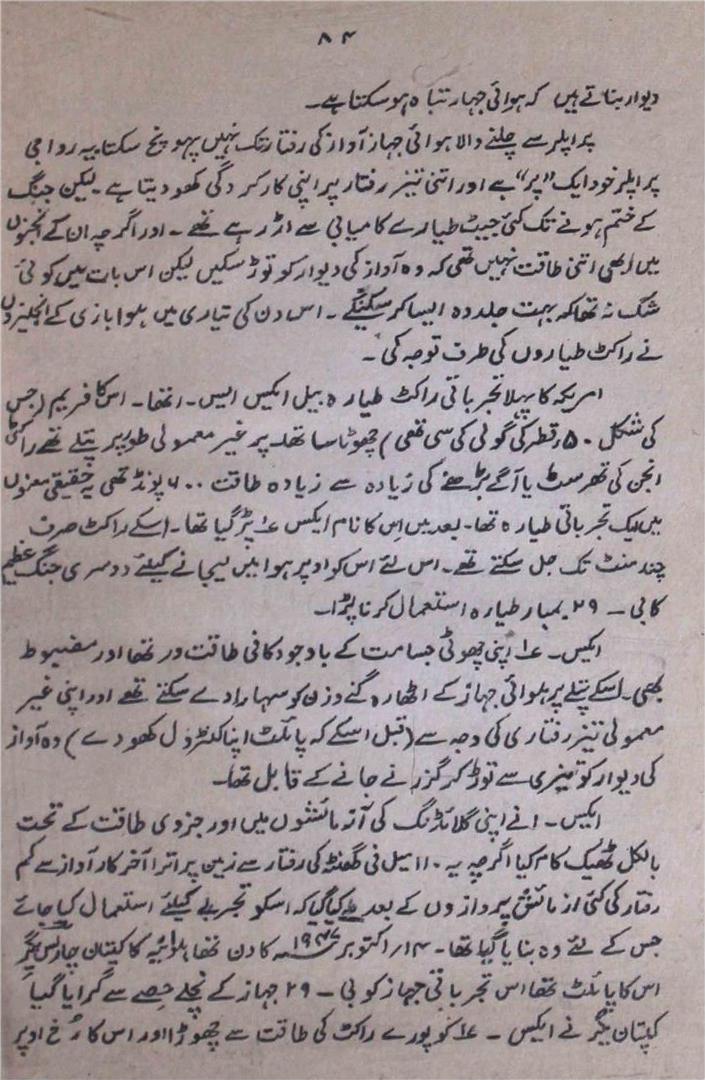 ۸۴
دیوار بناتے ہیں کہ ہوائی جہاز تباہ ہو سکتا ہے۔
پراپلر سے چلنے والا ہوائی جہاز آواز کی رفتار تک نہیں پہونچ سکتا یہ رواجی
پراپلر خود ایک “پر” ہے اور اتنی تیز رفتار پر اپنی کارکردگی کھو دیتا ہے۔ لیکن جنگ
کے ختم ہونے تک کئی جیٹ طیارے کامیابی سے اڑ رہے تھے۔ اور اگرچہ ان کے انجنوں
میں ابھی اتنی طاقت نہیں تھی کہ وہ آواز کی دیوار کو توڑ سکیں لیکن اس بات میں کوئی
شک نہ تھا کہ بہت جلد وہ ایسا کر سکینگے۔ اس دن کی تیاری میں ہوابازی کے انجنیروں
نے راکٹ طیاروں کی طرف توجہ کی۔
امریکہ کا پہلا تجرباتی راکٹ طیارہ بیل ایکس ایس۔ ا تھا۔ اس کا فریم (جس
کی شکل ۵۰ر قطر کی گولی کی سی تھی) چھوٹا سا تھا۔ پر غیر معمولی طور پر پتلے تھے راکٹ
انجن کی تھرسٹ یا آگے بڑھنے کی زیادہ سے زیادہ طاقت ۶۰۰۰ پونڈ تھی یہ حقیقی معنوں
میں ایک تجرباتی طیارہ تھا۔ بعد میں اس کا نام ایکس ۱؎ پڑ گیا تھا۔ اسکے راکٹ صرف
چند منٹ تک جل سکتے تھے۔ اس لئے اس کو اوپر ہوا میں لیجانے کیلئے دوسری جنگ عظیم
کا بی۔ ۲۹ بمبار طیارہ استعمال کرنا پڑا۔
ایکس۔ ۱؎ اپنی چھوٹی جسامت کے باوجود کافی طاقت ور تھا اور مضبوط
بھی۔ اسکے پتلے پر ہوائی جہاز کے اٹھارہ گنے وزن کو سہارا دے سکتے تھے اور اپنی غیر
معمولی تیز رفتاری کی وجہ سے (قبل اسکے کہ پائلٹ اپنا کنٹرول کھو دے) وہ آواز
کی دیوار کو تیزی سے توڑ کر گزر نے جانے کے قابل تھا۔
ایکس۔ ا نے اپنی گلائڈنگ کی آزمائشوں میں اور جزوی طاقت کے تحت
بالکل ٹھیک کام کیا اگرچہ یہ ۱۱۰ میل فی گھنٹہ کی رفتار سے زمین پر اترا آخر کار آواز سے کم
رفتار کی کئی ازمائشی پروازوں کے بعد طے کیا گیا کہ اسکو تجربے کیلئے استعمال کیا جائے
جس کے لئے وہ بنایا گیا تھا۔ ۱۴ر اکتوبر ۱۹۴۷ء کا دن تھا ہوائیہ کا کپتان چارلس یگر
اس کا پائلٹ تھا اس تجرباتی جہاز کو بی۔ ۲۹ جہاز کے نچلے حصے سے گرایا گیا
کپتان یگر نے ایکس۔ ۱؎ کو پورے راکٹ کی طاقت سے چھوڑا اور اس کا رُخ اوپر